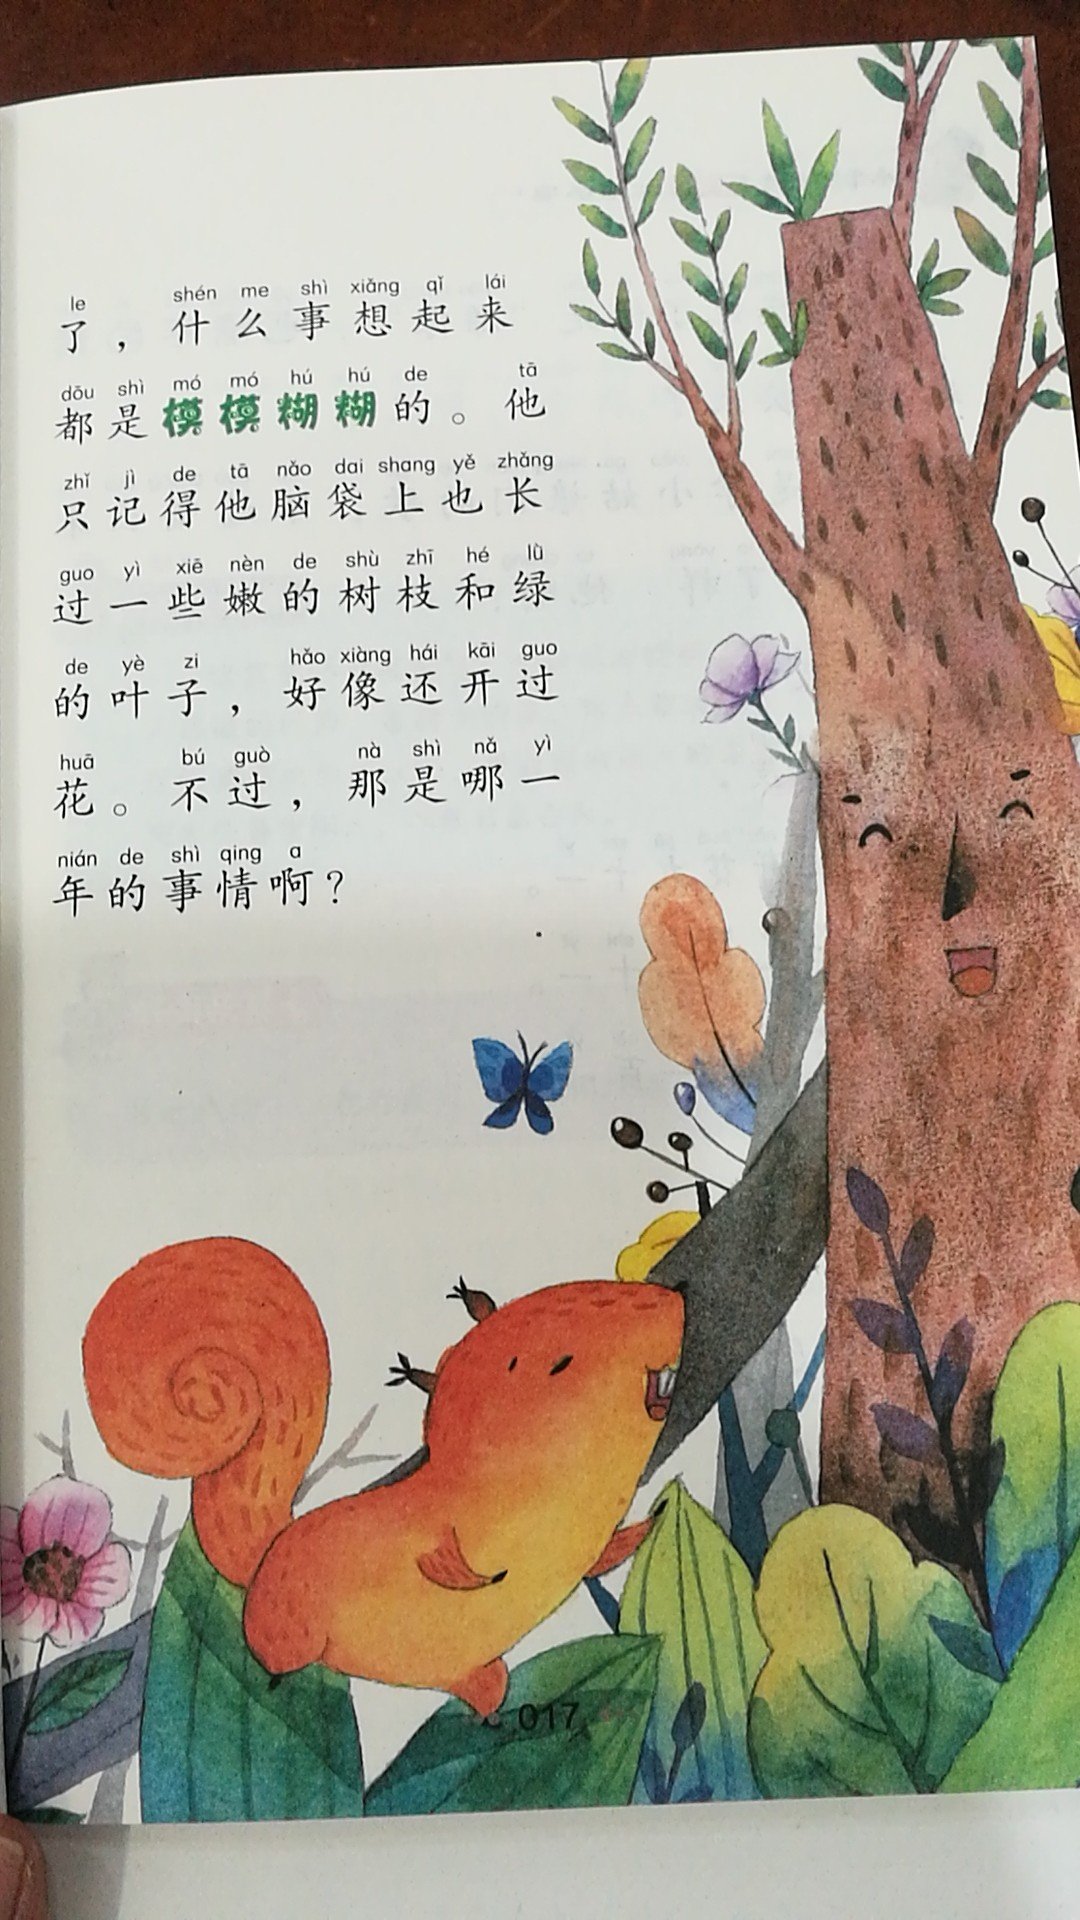 le shén me shì xiǎng qǐ lái
了，什么事想起来
dōu shì mó mó hú hú de tā
都是模模糊糊的。他
zhǐ jì de tā nǎo dai shang yě zhǎng
只记得他脑袋上也长
guo yì xiē nèn de shù zhī hé lǜ
过一些嫩的树枝和绿
de yè zi hǎo xiàng hái kāi guo
的叶子，好像还开过
huā bú guò nà shì nǎ yì
花。不过，那是哪一
nián de shì qing a
年的事情啊？
017